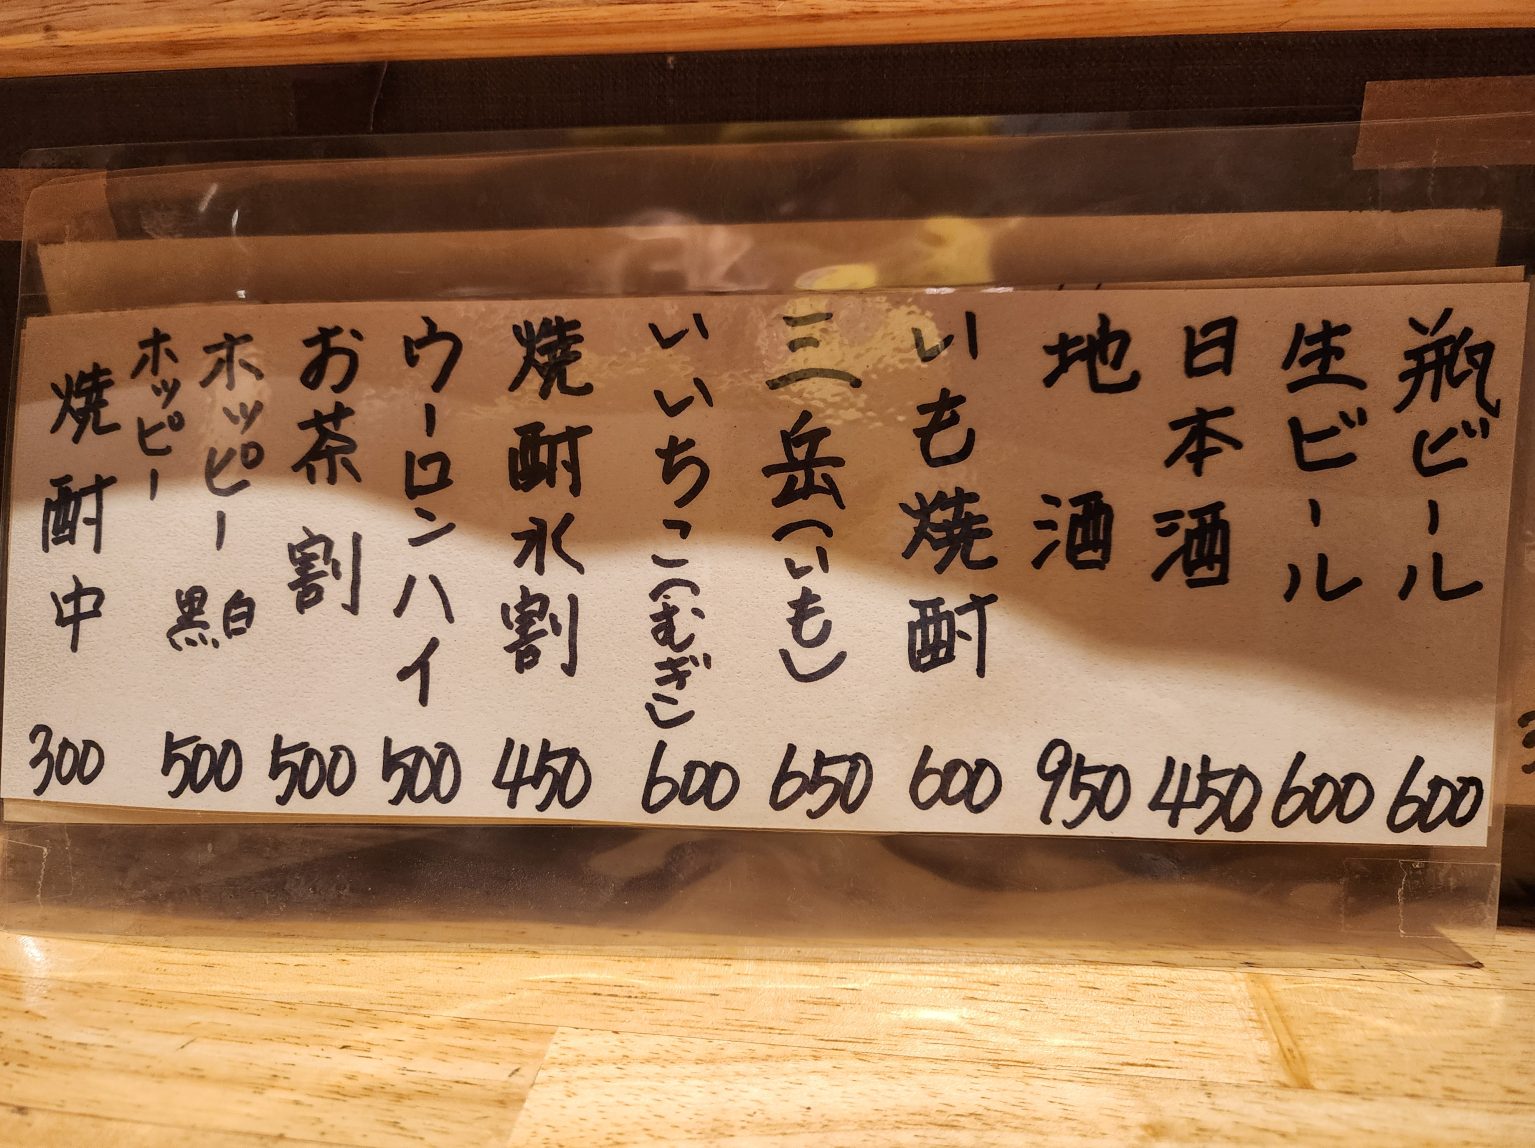 瓶ビール 600
生ビール 600
日本酒 450
地酒 950
いも焼酎 600
三岳(いも) 650
いいちこ(むぎ) 600
焼酎水割 450
ウーロンハイ 500
お茶割 500
ホッピー 白
ホッピー 黒
500
焼酎中 300